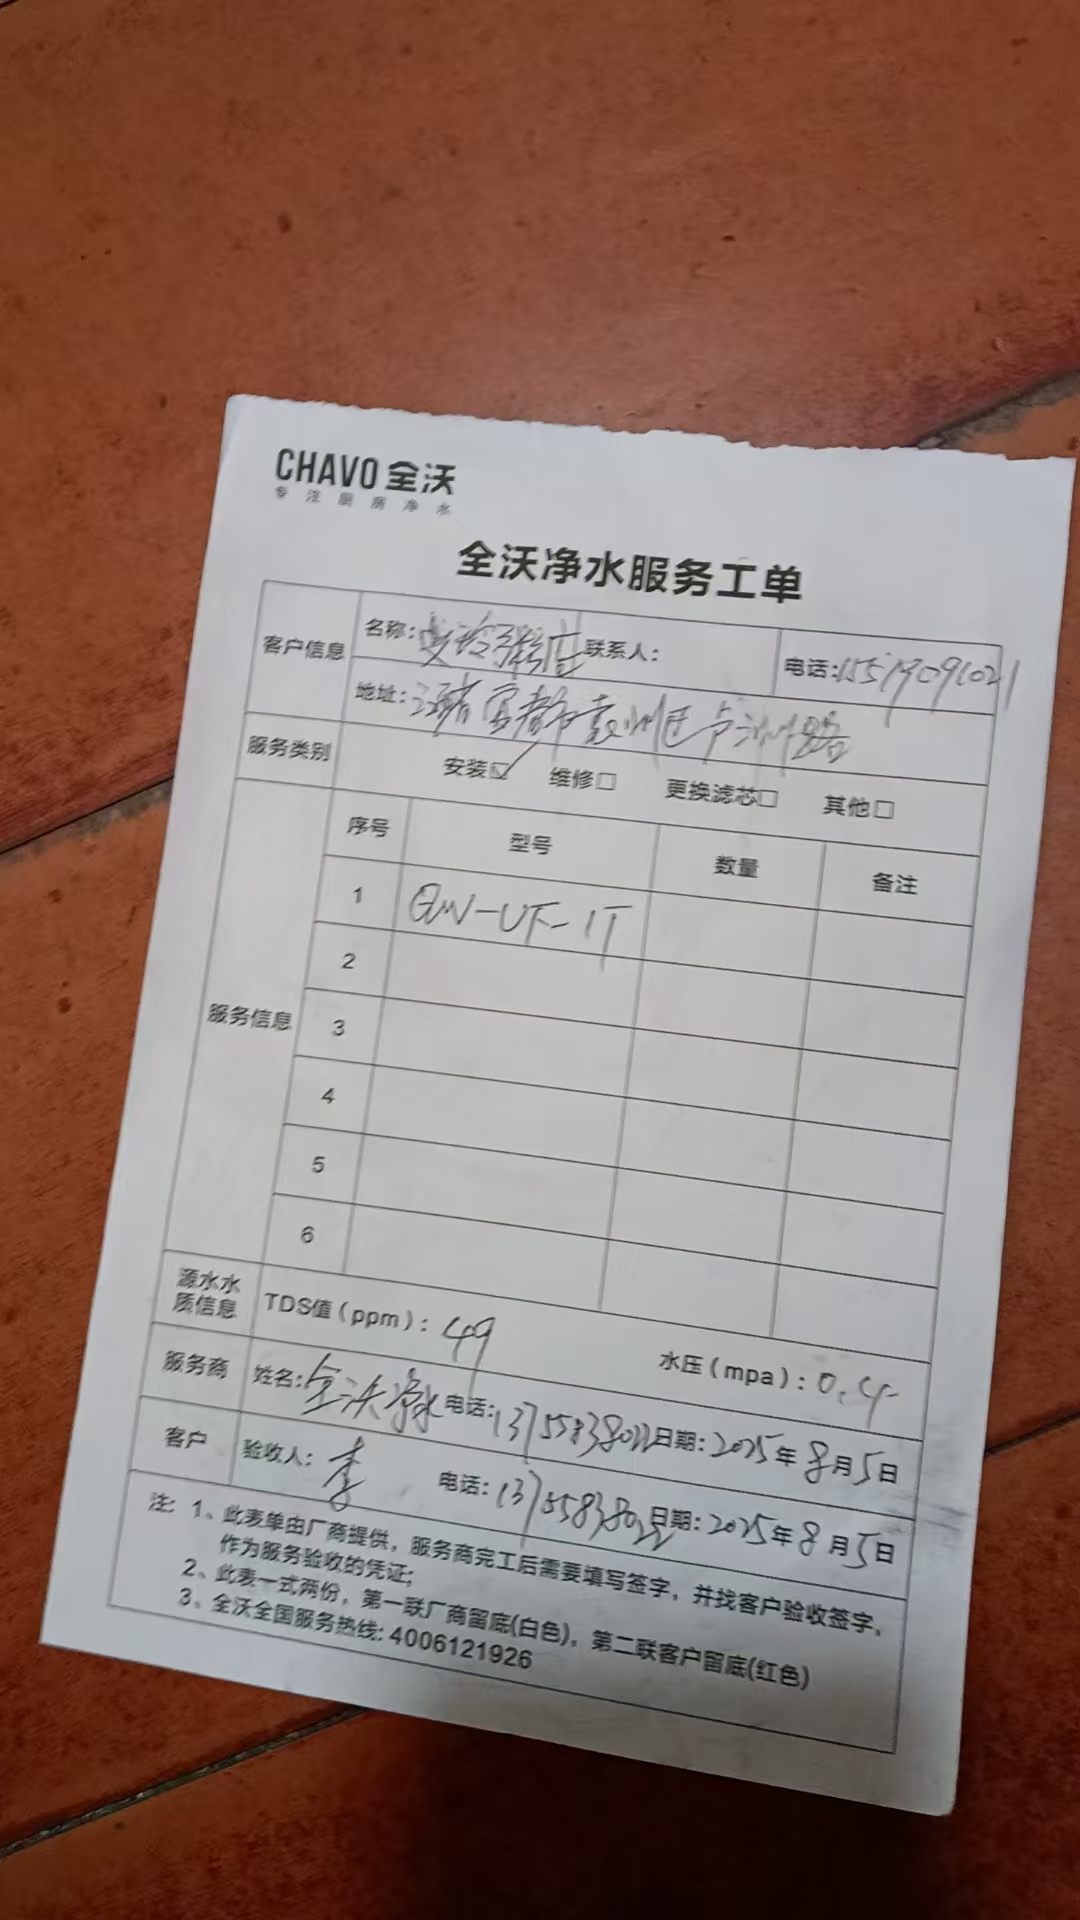 CHAVO 全沃
专注厨房净水
全沃净水服务工单
客户信息 名称: 联系人: 电话:
地址: 袁州区卢洲路
服务类别 安装☑ 维修□ 更换滤芯□ 其他□
服务信息 序号 型号 数量 备注
1 QW-UF-1T
2
3
4
5
6
源水水质信息 TDS值(ppm): 49 水压(mpa): 0.4
服务商 姓名: 全沃净水 电话: 13755838022 日期: 2025年8月5日
客户 验收人: 李 电话: 13755838022 日期: 2025年8月5日
注: 1、此表单由厂商提供，服务商完工后需要填写签字，并找客户验收签字，
作为服务验收的凭证;
2、此表一式两份，第一联厂商留底(白色)，第二联客户留底(红色)
3、全沃全国服务热线: 4006121926